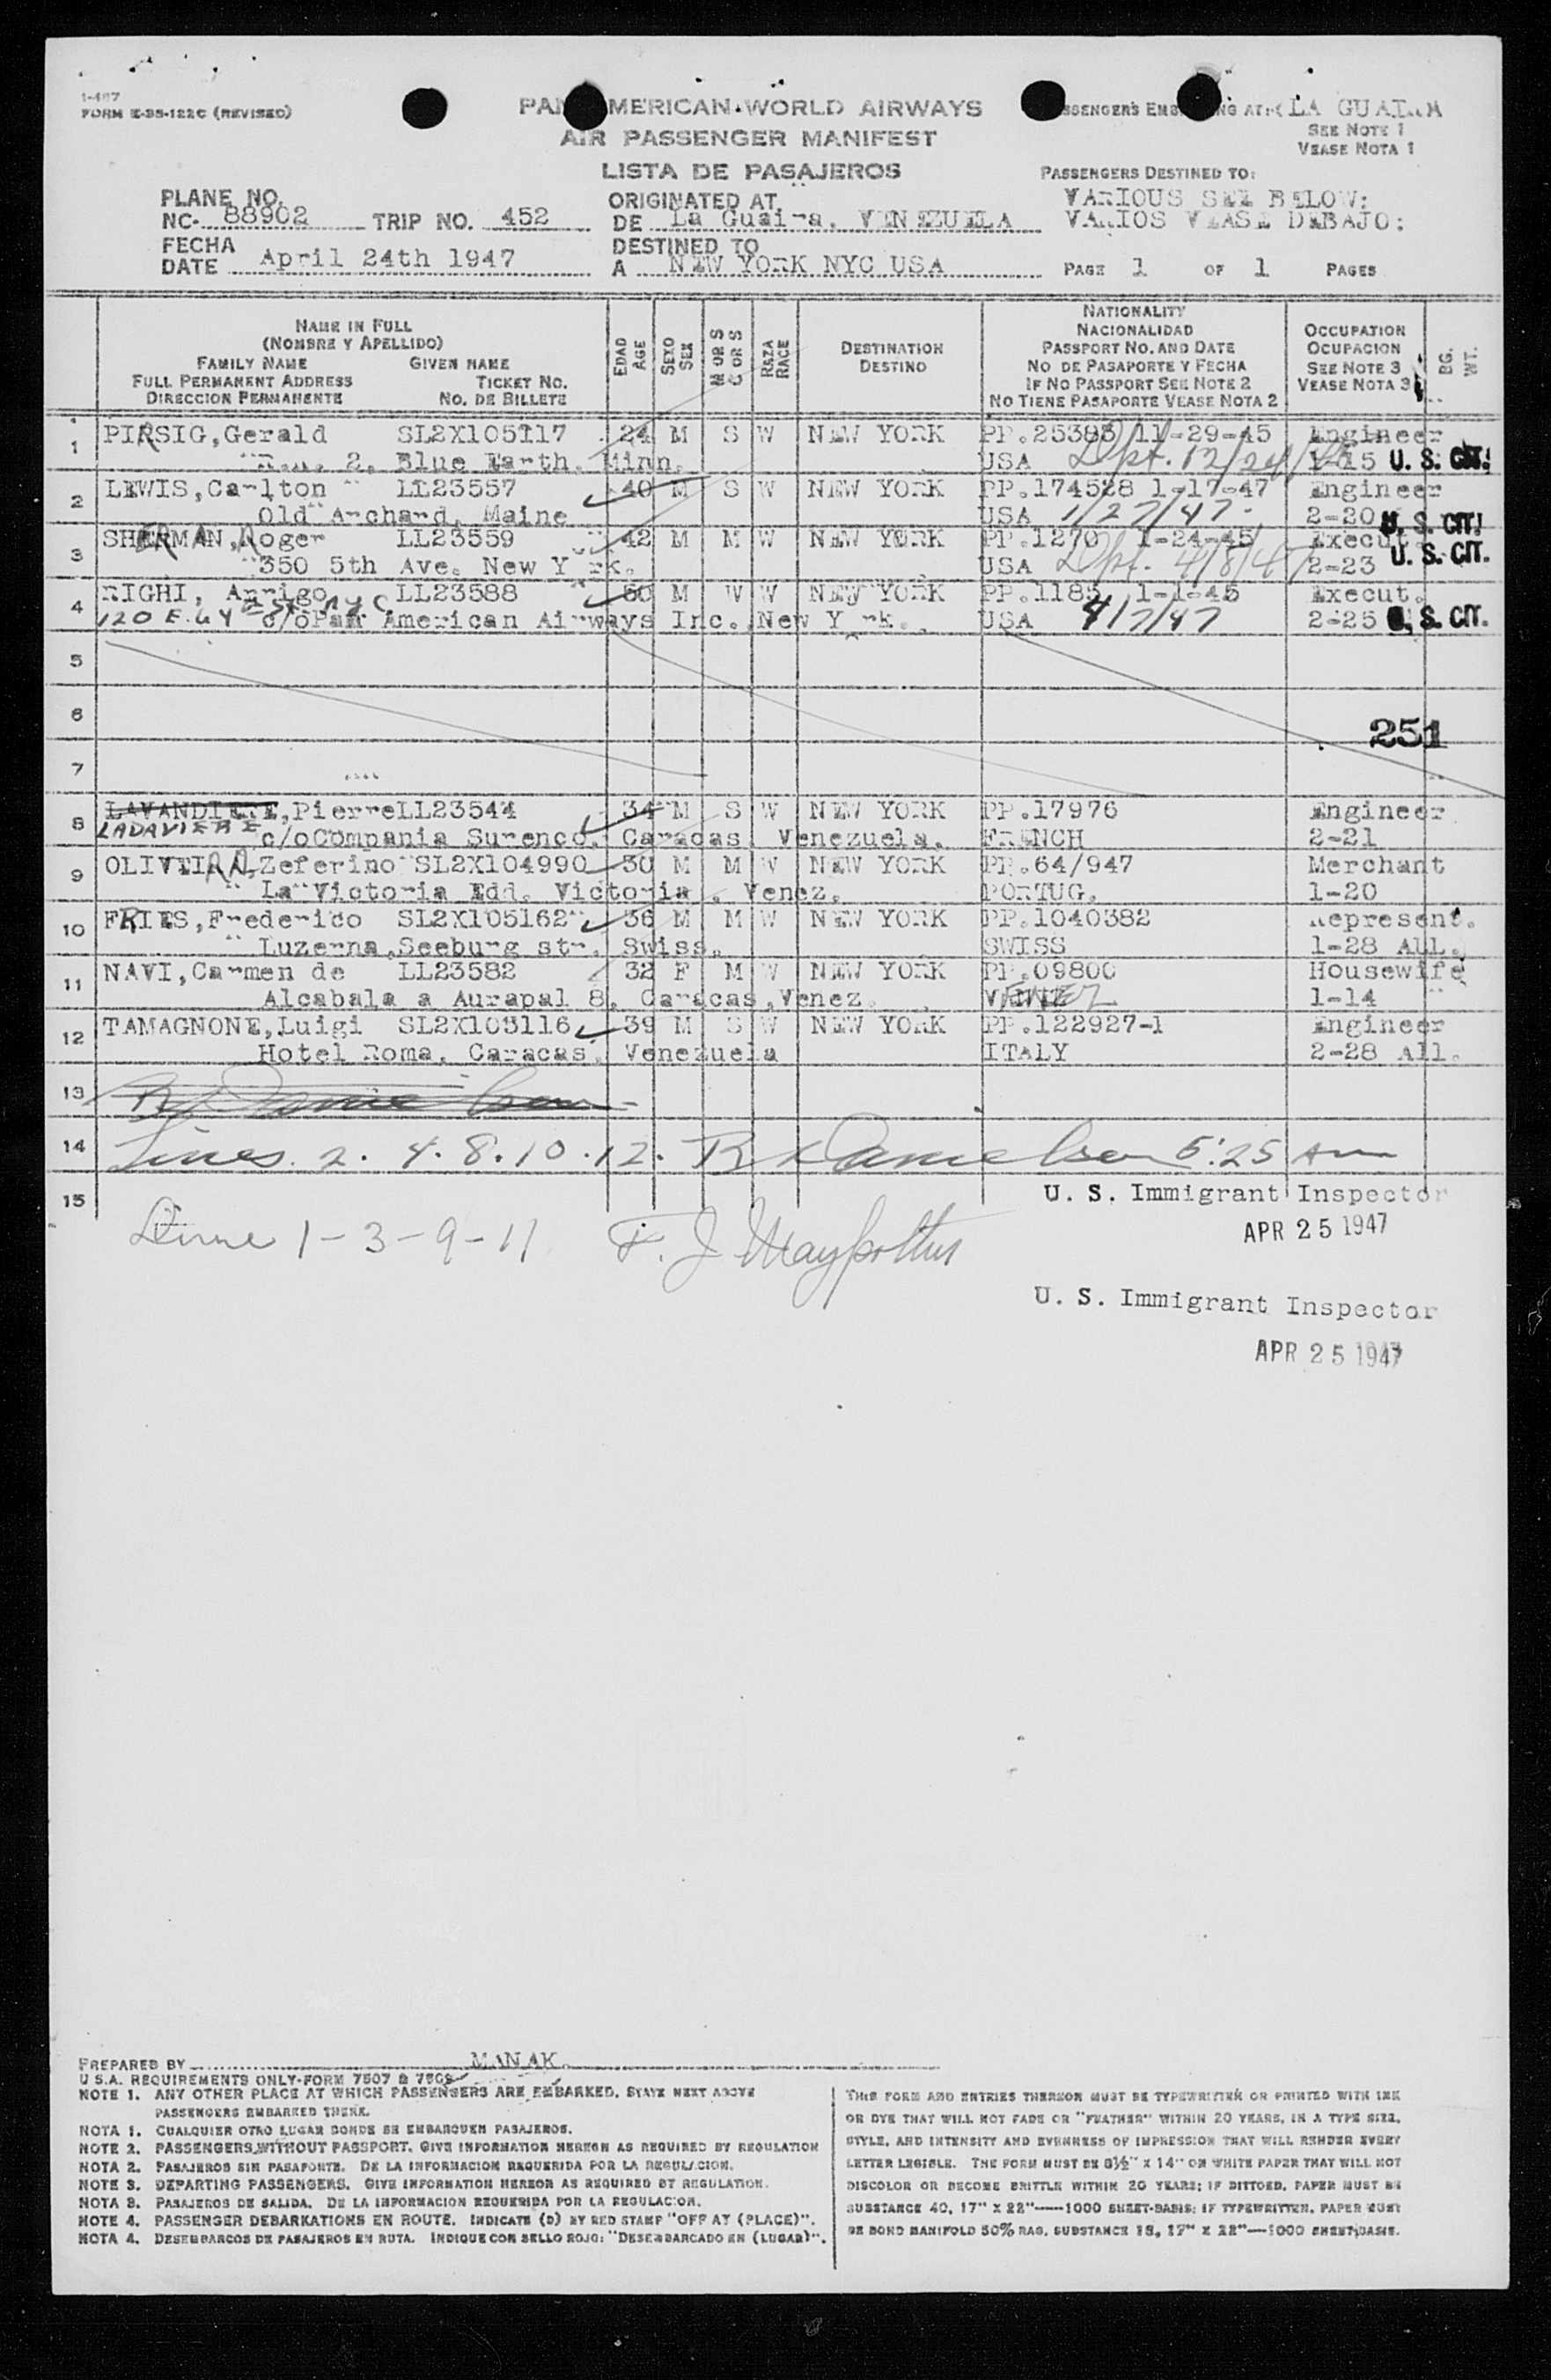 1-467
FORM E-35-122C (REVISED)
PAN AMERICAN WORLD AIRWAYS
AIR PASSENGER MANIFEST
LISTA DE PASAJEROS
LA GUAIRA
SEE NOTE 1
VEASE NOTA 1
PASSENGERS DESTINED TO:
VARIOUS SEE BELOW:
VARIOS VEASE DEBAJO:
PLANE NO.
NC- 88902 TRIP NO. 452
FECHA
DATE April 24th 1947
ORIGINATED AT
DE La Guaira, VENEZUELA
DESTINED TO
A NEW YORK NYC USA
PAGE 1 OF 1 PAGES
NAME IN FULL
(NOMBRE Y APELLIDO)
FAMILY NAME GIVEN NAME
FULL PERMANENT ADDRESS TICKET NO.
DIRECCION PERMANENTE NO. DE BILLETE
EDAD AGE
SEXO SEX
M OR S C OR S
RAZA RACE
DESTINATION
DESTINO
NATIONALITY
NACIONALIDAD
PASSPORT NO. AND DATE
NO DE PASAPORTE Y FECHA
IF NO PASSPORT SEE NOTE 2
NO TIENE PASAPORTE VEASE NOTA 2
OCCUPATION
OCUPACION
SEE NOTE 3
VEASE NOTA 3
BG. WT.
1 PIRSIG, Gerald SL2X105117 24 M S W NEW YORK PP.25383 11-29-45 Engineer
R.R. 2, Blue Earth, Minn. USA Dpt. 12/24/ 1-15 U. S. CIT.
2 LEWIS, Carlton LL23557 40 M S W NEW YORK PP.174528 1-17-47 Engineer
Old Archard, Maine USA 1/27/47 2-20 U. S. CIT.
3 SHERMAN, Roger LL23559 42 M M W NEW YORK PP.1270 1-24-45 Execut.
350 5th Ave. New Y rk. USA Dpt. 4/8/47 2-23 U. S. CIT.
4 RIGHI, Arrigo LL23588 50 M W W NEW YORK PP.1185 1-1-45 Execut.
120 E. 64 St. NYC c/o Pan American Airways Inc. New Y rk. USA 4/7/47 2-25 U. S. CIT.
5
6
251
7
8 LAVANDIERE, Pierre LL23544 34 M S W NEW YORK PP.17976 Engineer
LADAVIERE c/o Compania Surenco. Caracas Venezuela. FRENCH 2-21
9 OLIVEIRA, Zeferino SL2X104990 30 M M W NEW YORK PP.64/947 Merchant
La Victoria Edd. Victoria . Venez. PORTUG. 1-20
10 FRIES, Frederico SL2X105162 36 M M W NEW YORK PP.1040382 Represent.
Luzerna, Seeburg str. Swiss. SWISS 1-28 ALL.
11 NAVI, Carmen de LL23582 32 F M W NEW YORK PP.09800 Housewife
Alcabala a Aurapal 8, Caracas, Venez. VENEZ 1-14
12 TAMAGNONE, Luigi SL2X105116 39 M S W NEW YORK PP.122927-1 Engineer
Hotel Roma, Caracas, Venezuela ITALY 2-28 All.
13
14 Lines 2. 4. 8. 10. 12. R Danielson 5:25 Am
15
U. S. Immigrant Inspector
APR 25 1947
Line 1-3-9-11 F. J.
U. S. Immigrant Inspector
APR 25 1947
PREPARED BY MANAK.
U.S.A. REQUIREMENTS ONLY-FORM 7507 & 7509
NOTE 1. ANY OTHER PLACE AT WHICH PASSENGERS ARE EMBARKED, STATE NEXT ABOVE
PASSENGERS EMBARKED THERE.
NOTA 1. CUALQUIER OTRO LUGAR DONDE SE EMBARQUEN PASAJEROS.
NOTE 2. PASSENGERS WITHOUT PASSPORT. GIVE INFORMATION HEREON AS REQUIRED BY REGULATION
NOTA 2. PASAJEROS SIN PASAPORTE. DE LA INFORMACION REQUERIDA POR LA REGULACION.
NOTE 3. DEPARTING PASSENGERS. GIVE INFORMATION HEREON AS REQUIRED BY REGULATION.
NOTA 3. PASAJEROS DE SALIDA. DE LA INFORMACION REQUERIDA POR LA REGULACION.
NOTE 4. PASSENGER DEBARKATIONS EN ROUTE. INDICATE (D) BY RED STAMP "OFF AT (PLACE)".
NOTA 4. DESEMBARCOS DE PASAJEROS EN RUTA. INDIQUE CON SELLO ROJO: "DESEMBARCADO EN (LUGAR)".
THIS FORM AND ENTRIES THEREON MUST BE TYPEWRITTEN OR PRINTED WITH INK
OR DYE THAT WILL NOT FADE OR "FEATHER" WITHIN 20 YEARS, IN A TYPE SIZE,
STYLE, AND INTENSITY AND EVENNESS OF IMPRESSION THAT WILL RENDER EVERY
LETTER LEGIBLE. THE FORM MUST BE 8½" X 14" ON WHITE PAPER THAT WILL NOT
DISCOLOR OR BECOME BRITTLE WITHIN 20 YEARS; IF DITTOED, PAPER MUST BE
SUBSTANCE 40, 17" X 22"—1000 SHEET-BASIS; IF TYPEWRITTEN, PAPER MUST
BE BOND MANIFOLD 50% RAG, SUBSTANCE 16, 17" X 22"—1000 SHEET BASIS.